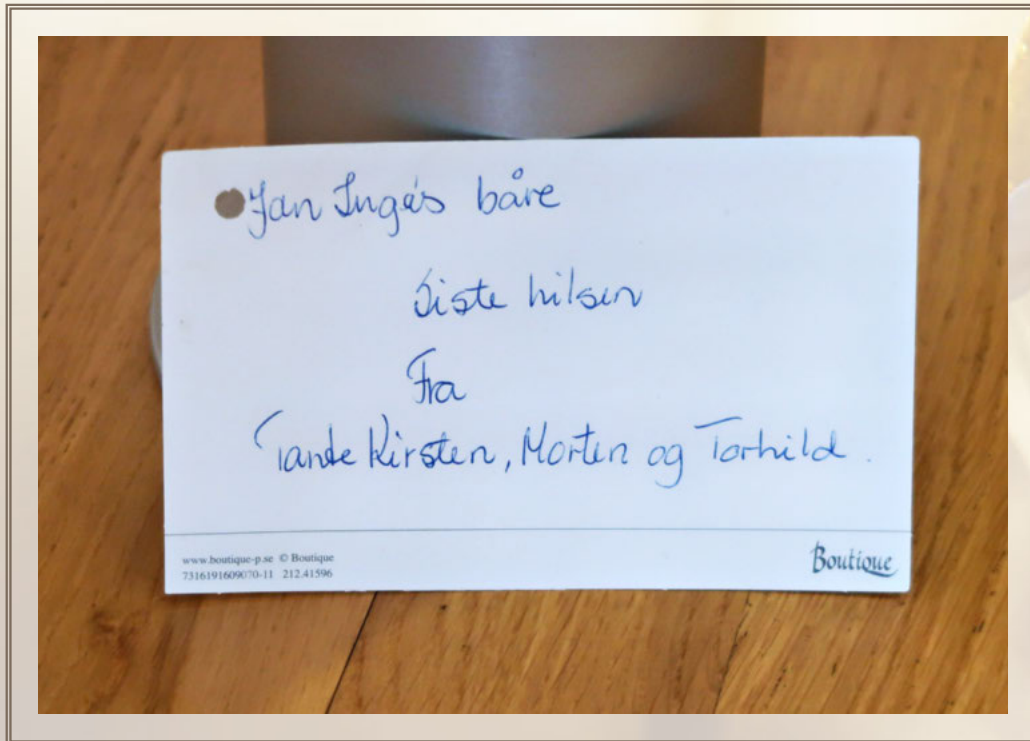 Jan Inge's båre
Siste hilsen
Fra
Tante Kirsten, Morten og Torhild.
www.boutique-p.se © Boutique
7316191609070-11 212.41596
Boutique